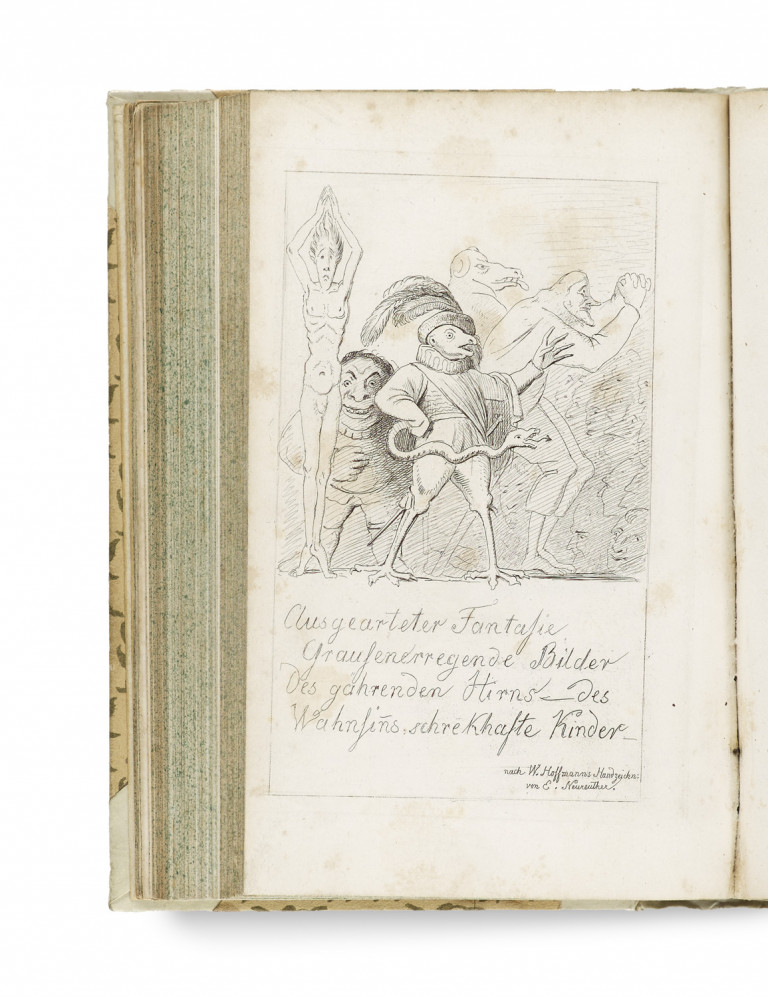 Ausgearteter Fantasie
Grausenerregende Bilder
Des gährenden Hirns – des
Wahnsin̄s, schrekhafte Kinder –
nach W. Hoffmanns Handzeichn:
von E. Neureuther.